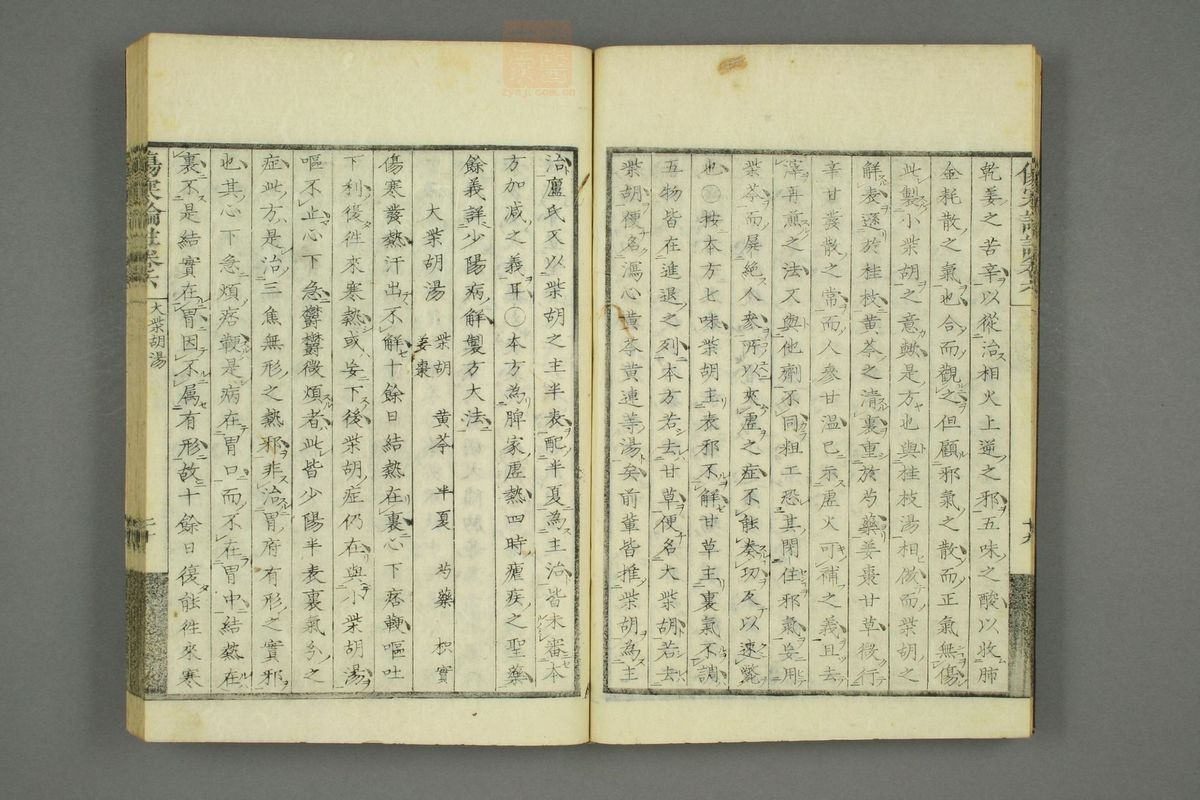 乾姜之苦辛以從治相火上逆之邪五味之酸以收肺
金耗散之氣也合而觀之但顧邪氣之散而正氣無傷
此製小柴胡之意歟是方也與桂枝湯相倣而柴胡之
解表遜於桂枝黄芩之清裏重於芍藥姜棗甘草微行
辛甘發散之常而人參甘温已示虛火可補之義且去
滓再煎之法又與他劑不同粗工恐其閉住邪氣妄用
柴芩而屏絶人參所以夾虛之症不能奏功反以速斃
也 按本方七味柴胡主表邪不解甘草主裏氣不調
五物皆在進退之列本方若去甘草便名大柴胡若去
柴胡便名瀉心黄芩黄連等湯矣前輩皆推柴胡為主
治盧氏又以柴胡之主半表配半夏為主治皆未審本
方加减之義耳○本方為脾家虛熱四時瘧疾之聖藥
餘義詳少陽病解製方大法
大柴胡湯 柴胡 黄芩 半夏 芍藥 枳實
姜棗
傷寒發熱汗出不解十餘日結熱在裏心下痞鞕嘔吐
下利復徃來寒熱或妄下後柴胡症仍在與小柴胡湯
嘔不止心下急鬱鬱微煩者此皆少陽半表裏氣分之
症此方是治三焦無形之熱邪非治胃府有形之實邪
也其心下急煩痞鞕是病在胃口而不在胃中結熱在
裏不是結實在胃因不属有形故十餘日復能徃來寒
傷寒論註卷六
大柴胡湯